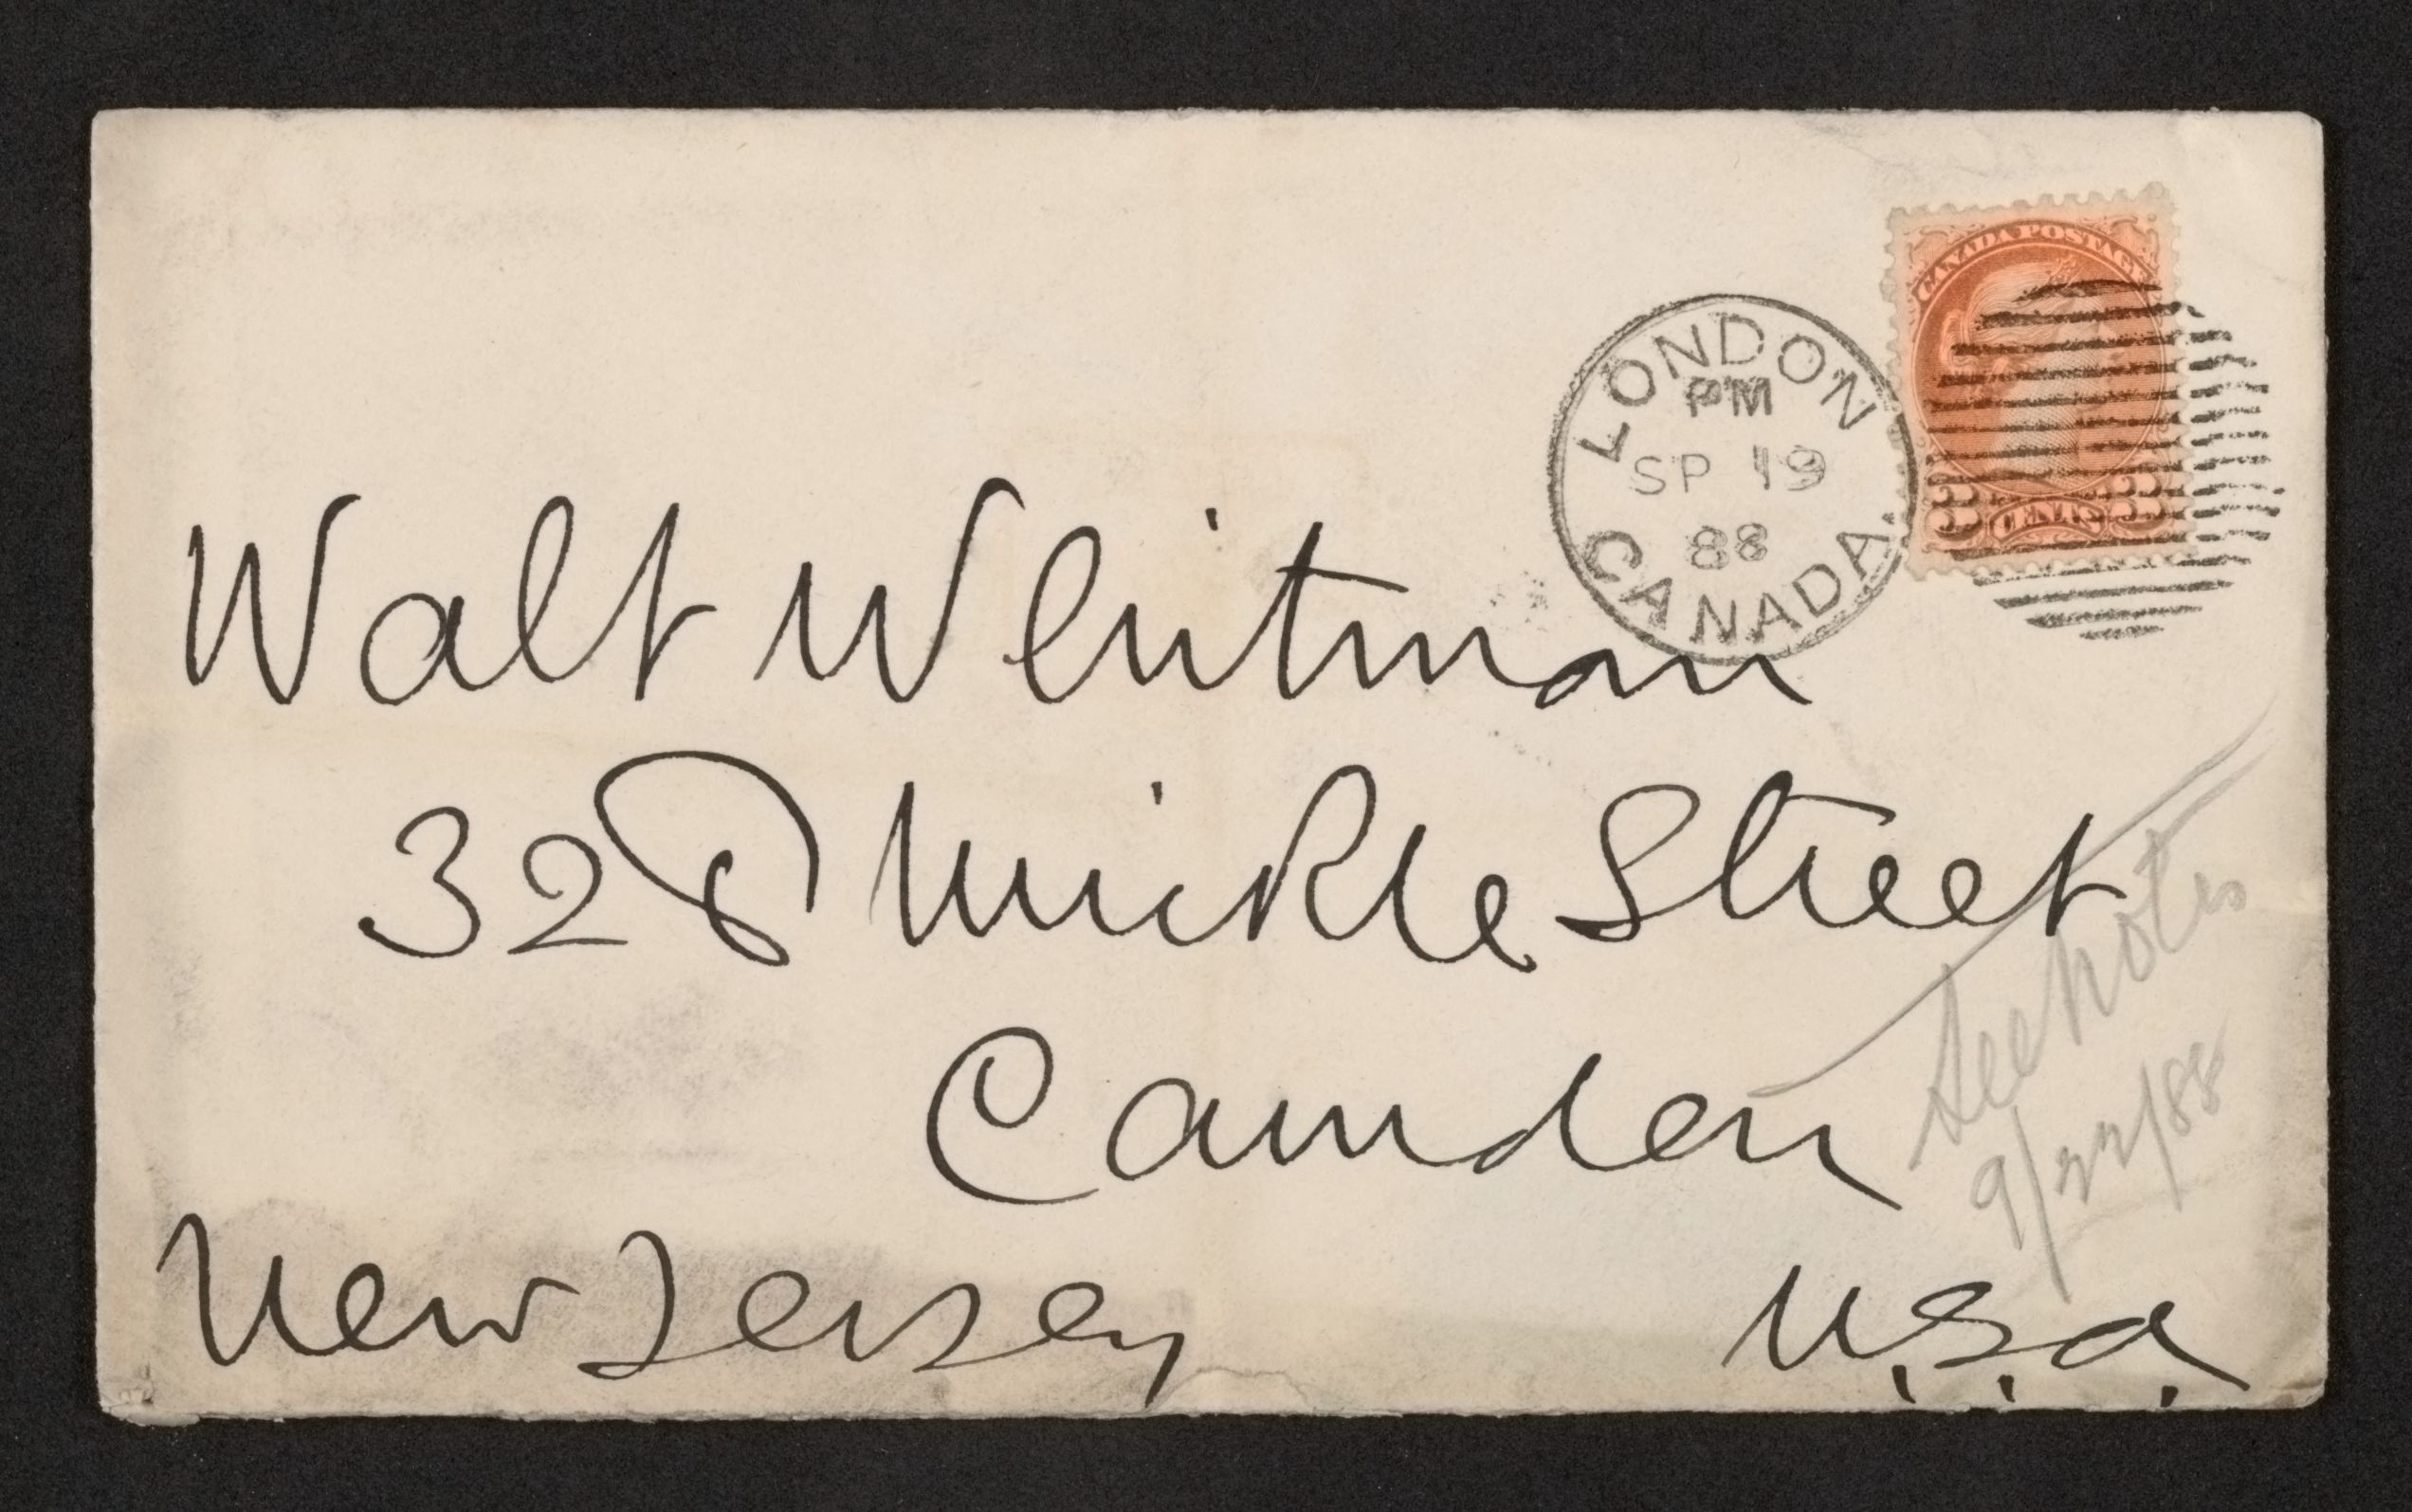 CANADA POSTAGE
3 CENTS 3
LONDON
PM
SP 19
88
CANADA.
Walt Whitman
328 Mickle Street
Camden
New Jersey
U.S.A.
See notes
9/22/88